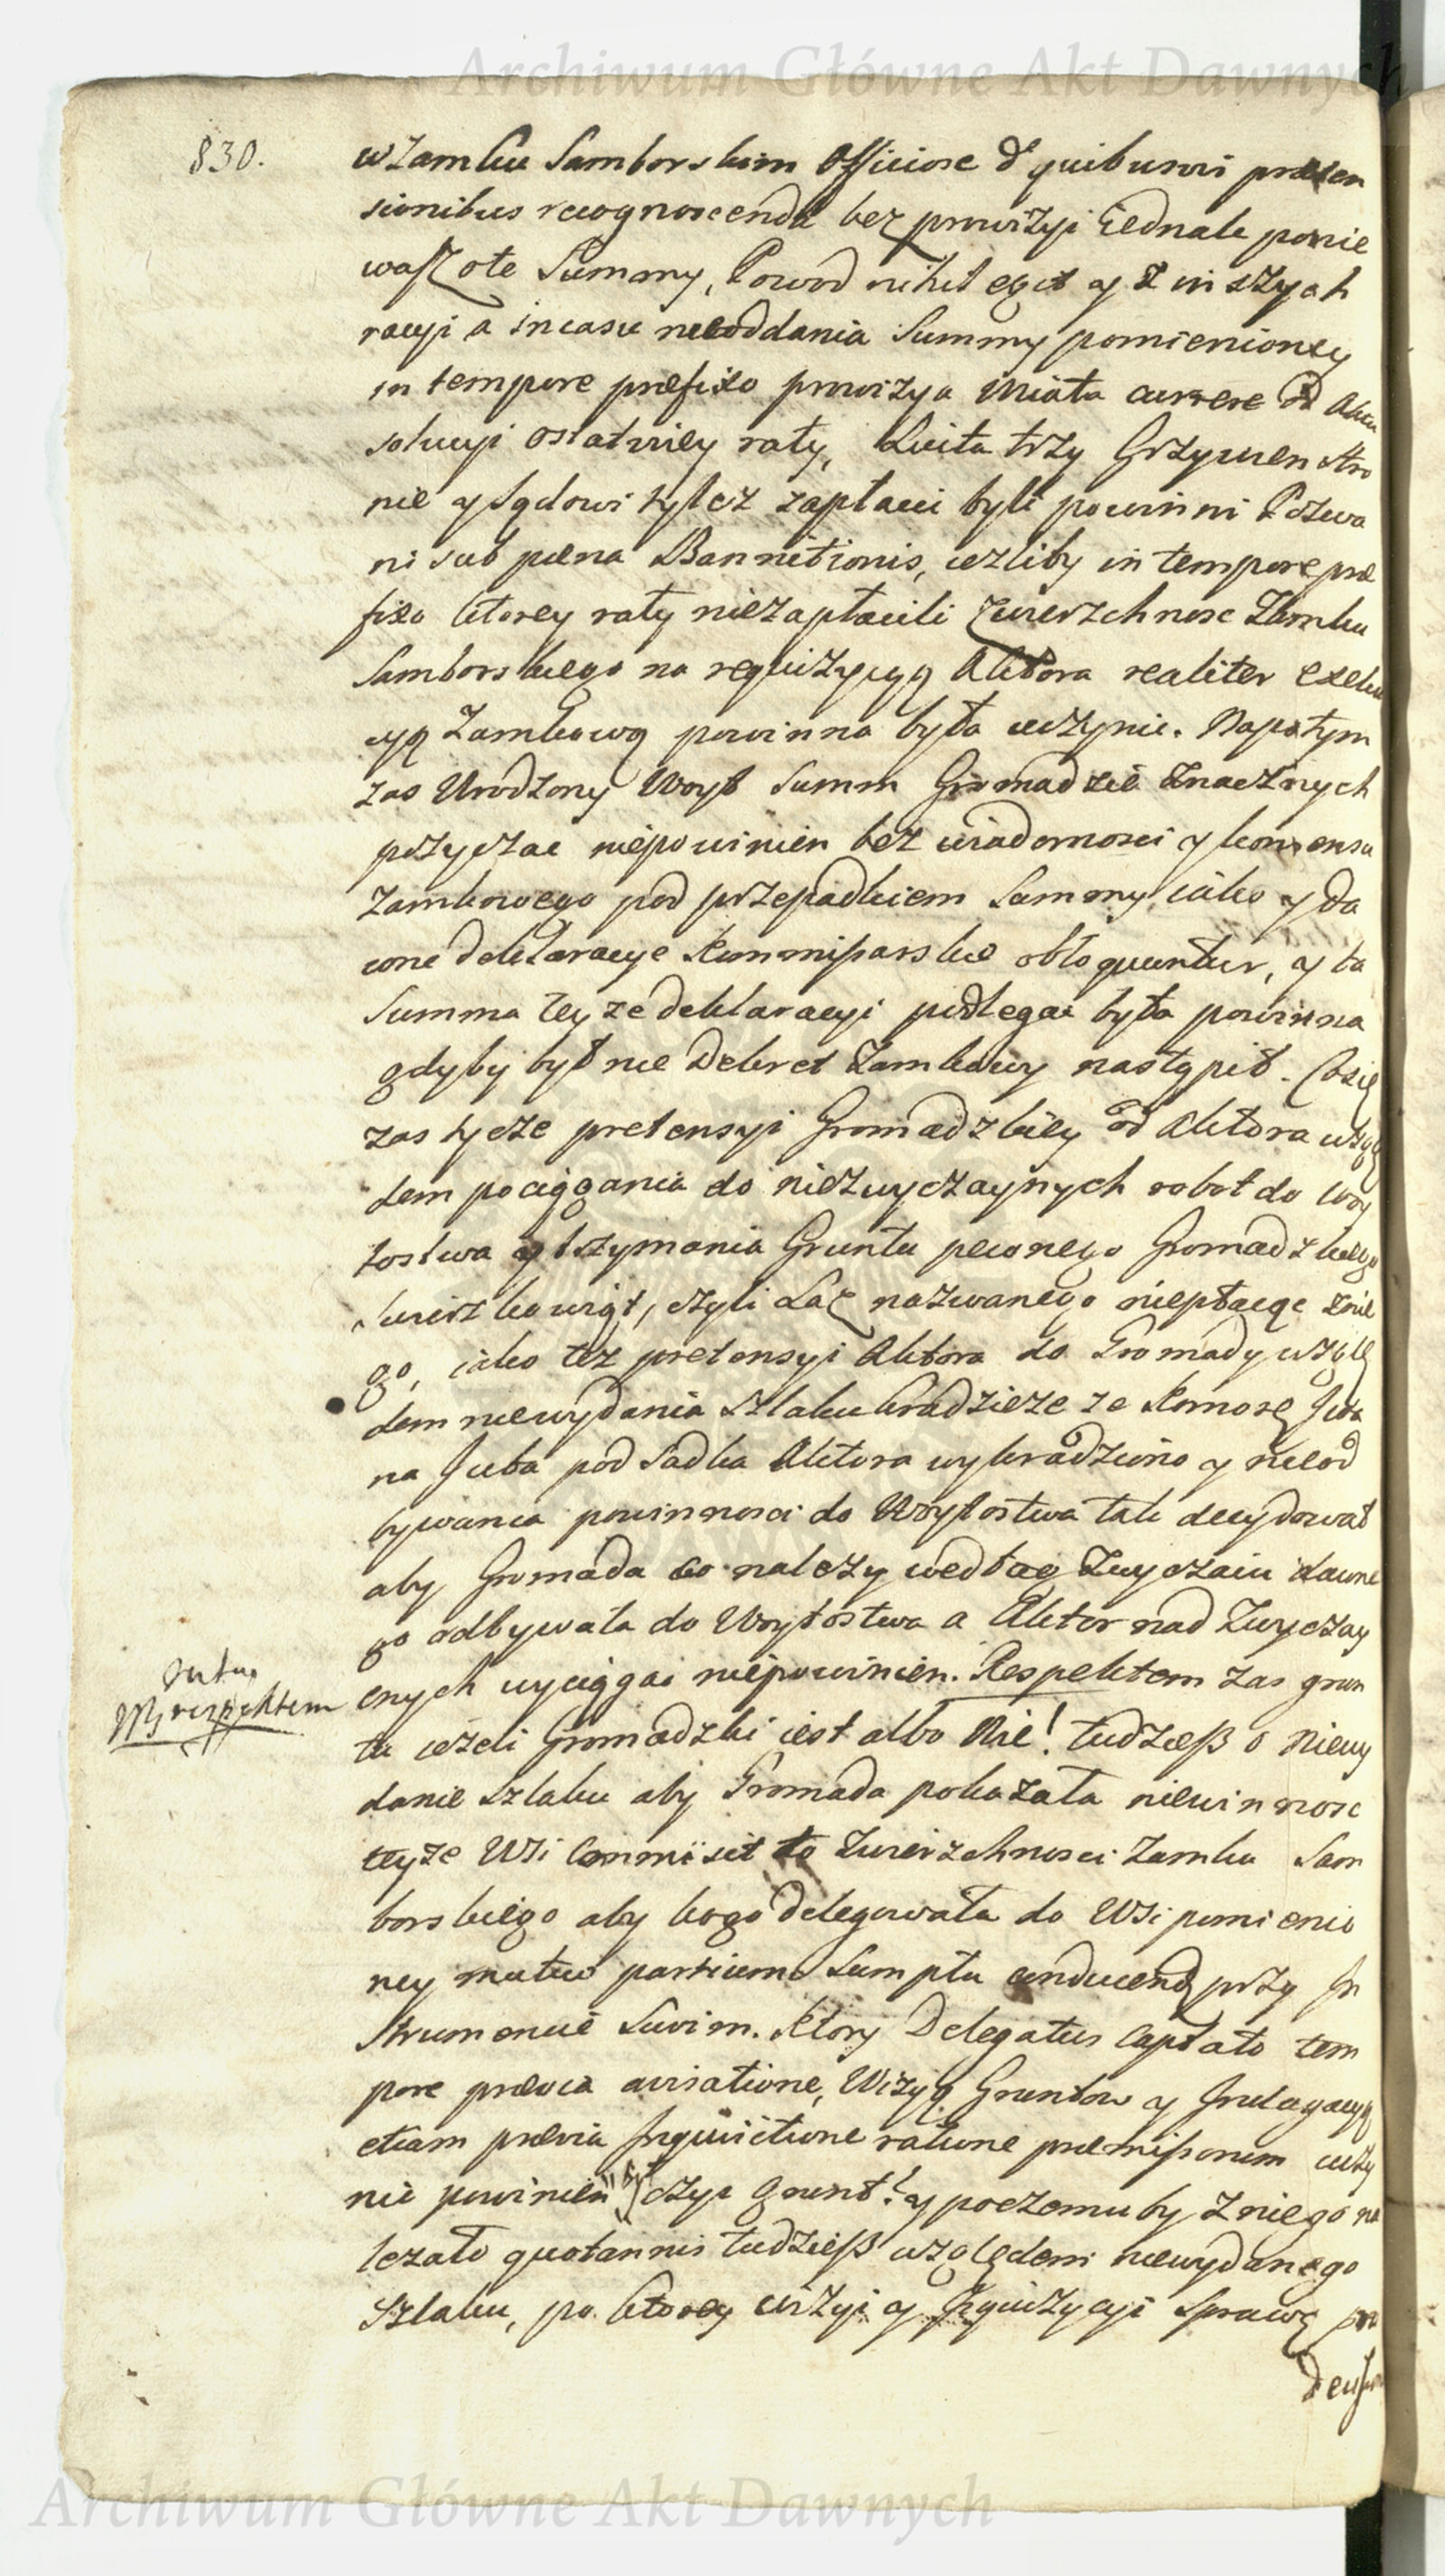 Archiwum Główne Akt Dawnych
830.
w Zamku Samborskim Officiose d quibusvis praeten
sionibus recognoscenda bez prowizyi iednak ponie
waſz o te Summy, Powod nihil egit y z inszych
racyi a in casu nieoddania Summy pomienioney
in tempore praefixo prowizya miała currere od
solucyi ostatniey raty, Luita trzy Grzywien Stro
nie y Sądowi tylez zapłacic byli powinni Pozwa
ni sub paena Bannitionis, iezliby in tempore prae
fixo ktorey raty niezapłacili Zwierzchnosc Zamku
Samborskiego na requizycyą Aktora realiter exeku
cyą Zamkową powinna była uczynic. Napotym
zas Urodzony Woyt Summ Gromadzie znacznych
pozyczac niepowinien bez wiadomosci y konsensu
Zamkowego pod przepadkiem Summy, iako y da
wne deklaracye Kommiſsarskie obloquuntur, y ta
Summa teyze deklaracyi podlegac była powinna
gdyby był nie Dekret Zamkowy nastąpił. Co się
zas tycze pretensyi Gromadzkiey od Aktora wzglę
dem pociągania do niezwyczaynych robot do Woy
tostwa y trzymania Gruntu pewnego Gromadzkiego
czyli Łaz nazwanego niepłacąc z nie
go, iako tez pretensyi Aktora do Gromady wzglę
dem niewydania Szlaku kradzieze ze Komorę Iwa
na Juba pod Sadka Aktora wykradziono y nieod
bywania powinnosci do Woytostwa tak decydował
aby Gromada co nalezy według Zwyczaiu dawne
go odbywała do Woytostwa a Aktor nad Zwyczay
enych wyciągac niepowinien. Respektem zas grun
tu iezeli Gromadzki iest albo Nie! tudzieſz o niewy
danie Szlaku aby Gromada pokazała niewinnosc
teyze Wsi Commisit to Zwierzchnosci Zamku Sam
borskiego aby kogo delegowała do Wsi pomienio
ney mutuo partium Sumptu conducend przy In
strumencie Suo im. Ktory Delegatus captato tem
pore praevia avisatione, Wizyą Gruntow y Indagacyą
etiam praevia Inquisitione ratione praemiſsorum uczy
nic powinien czyi Grunt! y poczemu by z niego na
lezało quotannis tudzieſz względem niewydanego
Szlaku, po ktorey wizyi y Inquizycyi Sprawę
respektem
Archiwum Główne Akt Dawnych